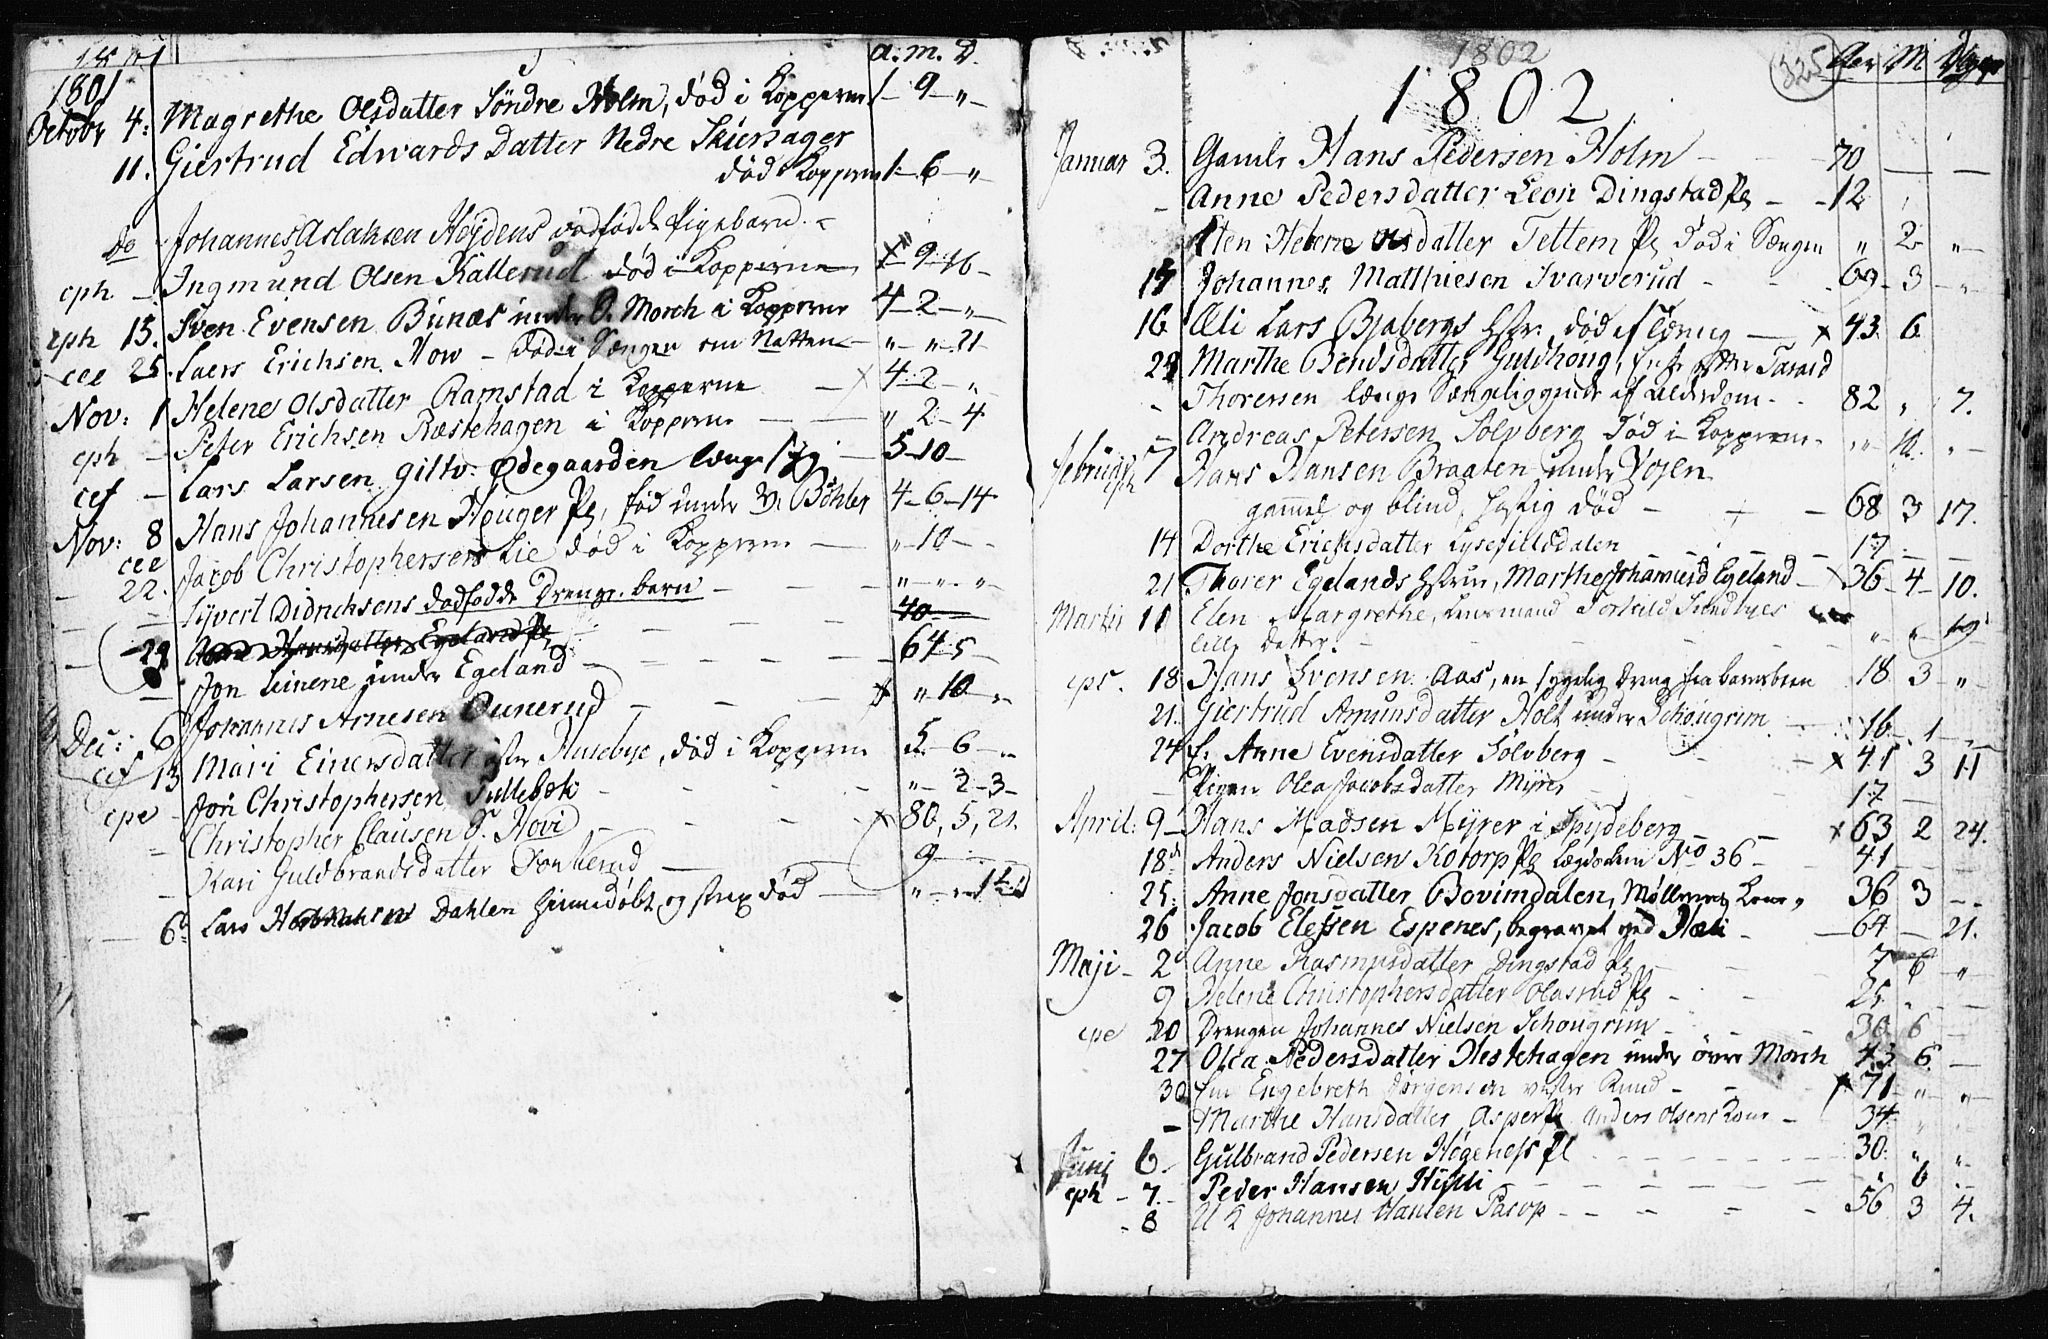 1801 a. m. D.
1801
Octobr 4. Magrethe Olsdatter Söndre Holm, död i Kopperne 1 - 9 - „ -
11. Giertrud Edwards Datter Nedre Skiersager
död i Kopperne 1 - 6 - „
do Johannes Aslaksen Höjdens dödfödde Pigebarn. -
eph. - Ingmund Olsen Kallerud död i Kopperne 9 - 16 -
eph 15. Sven Evensen Bunæs under O. Morch i Kopperne 4 - 2 - „ -
cee 25. Laers Erichsen How - död i Sængen om Natten - „ - „ - 21 -
Nov: 1 Helene Olsdatter Ramstad i Kopperne - x 4 - 2 - „
eph - Peter Erichsen Ræstehagen i Kopperne - - „ 2 - 4
cef - Lars Larsen giltv: Ødegaarden længe syg - 5 - 10 -
Nov: 8 Hans Johannesen Houger Pl, död under V. Böhler 4 - 6 - 14
cee Jacob Christophersen Lie död i Kopperne - „ - 10 - -
22. Syvert Didrichsens dödfödde Drenge-barn - - - „ - „ - „
40
29 Hansdatter Egeland Pl
Jon Leinene under Egeland - - - - - 64 - 5 -
Johannes Arnesen Ounerud - - - x „ 10 - „
Dec: 6 Mari Einersdatter vester Husebye, död i Kopperne 5 - 6 - „
cef 13 Jon Christophersen Tullebæk - - - - „ - 2 - 3 -
epe - Christopher Clausen S. Hovi - - - x 80, 5, 21.
- Kari Guldbrandsdatter Fonkerud - 9 -
6. Lars Dahlen hiemedöbt og strax död - „ - „ - 1
1802 325 Aar M Dage
1802
Januar 3. Gamle Hans Pedersen Holm - - - 70 - -
- Anne Pedersdatter Leon Dingstad Pl - - 12
Helene Olsdatter Tettem Pl död i Sængen „ 2 „ -
Johannes Matthiesen Svarverud - - - 69 - 3 - „ -
16 Æli Lars Bjabergs Hstr. död - x 43. 6
24 Marthe Bendsdatter Guldhoug,
- Thoressen længe Sængeliggende af Alderdom - - 82 „ 7.
- Andreas Petersen Solvberg död i Kopperne -
Februar 7 Hans Hansen Braaten under Vojen
gammel og blind, hastig död - + - 68 3 17.
14 Dorthe Erichsdatter Lysefieldsdalen - - 17 - -
21 Thorer Egelands Hstrue, Marthe Johannisd Egeland - x 36 - 4 - 10.
Martii 11 Elen Margrethe, Lensmand Torkild Sundbyes
lille Datter. - - - - „ „ 19
eps. 18 Hans Svensen Aas, en sygelig Dreng fra barnsbeen 18 3 - „ -
21. Giertrud Amunsdatter Holt under Schougrim - 16 - 1 -
24 Anne Evensdatter Sölvberg - - x 41 3 11
- Pigen Olea Jacobsdatter Myrer - - 17 -
April: 9 - Hans Madsen Myrer i Spydeberg - - x 63 2 24.
18 Anders Nielsen Kotorp Pl Lægdslem No 36 - - 41 -
25: Anne Jonsdatter Bovimdalen, Møllerens Kone, 36 3 - -
26 Jacob Elefsen Espenes, begravet ved Hæli - - 64 - 21.
Maji - 2 Anne Rasmusdatter Dingstad Pl - - 7 6 - „
9 Helene Christophersdatter Olasrud Pl - - 25. „ - -
epe 20 Drengen Johannes Nielsen Schougrim - - - 30 6
27 Olea Pedersdatter Hestehagen under övre Morch 43 6 -
30 Engebreth Jörgensen vester Ruud - - x 71 - „ - „
- Marthe Hansdatter Asper Pl Anders Olsens Kone - 34 „
Junj 6 - Gulbrand Pedersen Högenefs Pl - - - - 30. „ „
eph - 7. - Peder Hansen Hylli - - - - „ 6 -
- 8 Johannes Hansen Parop - - - - 56 3 4.